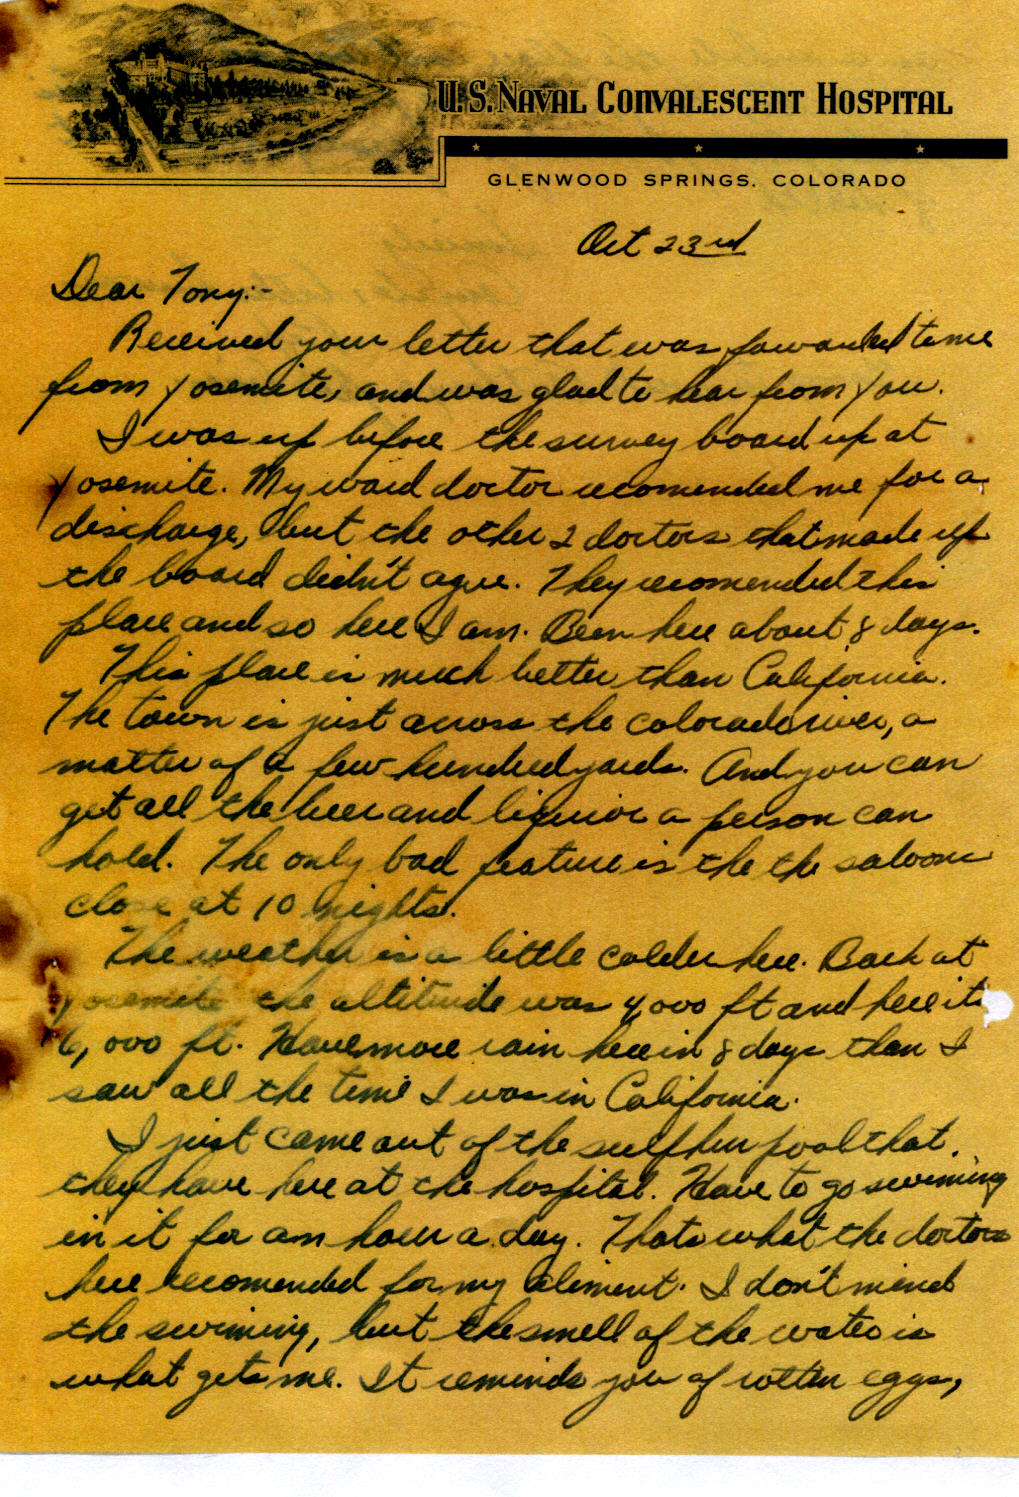 U.S. NAVAL CONVALESCENT HOSPITAL
GLENWOOD SPRINGS, COLORADO
Oct 23rd
Dear Tony:-
Received your letter that was fowarded to me
from Yosemite, and was glad to hear from you.
I was up before the survey board up at
Yosemite. My ward doctor recomended me for a
discharge, but the other 2 doctors that made up
the board didn't agree. They recomended this
place and so here I am. Been here about 8 days.
This place is much better than California.
The town is just across the Colorado river, a
matter of a few hundred yards. And you can
get all the beer and liquior a person can
hold. The only bad feature is the the saloons
close at 10 nights.
The weather is a little colder here. Back at
Yosemite the altitude was 4,000 ft and here its
6,000 ft. Have more rain here in 8 days than I
saw all the time I was in California.
I just came out of the sulphur pool that
they have here at the hospital. Have to go swiming
in it for am hour a day. Thats what the doctors
here recomended for my aliment. I don't mind
the swiming, but the smell of the water is
what gets me. It reminds you of rotten eggs,